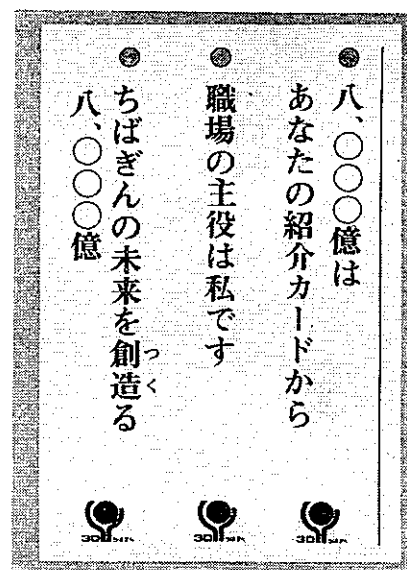 八、〇〇〇億は
あなたの紹介カードから
職場の主役は私です
ちばぎんの未来を創造る
つく
八、〇〇〇億